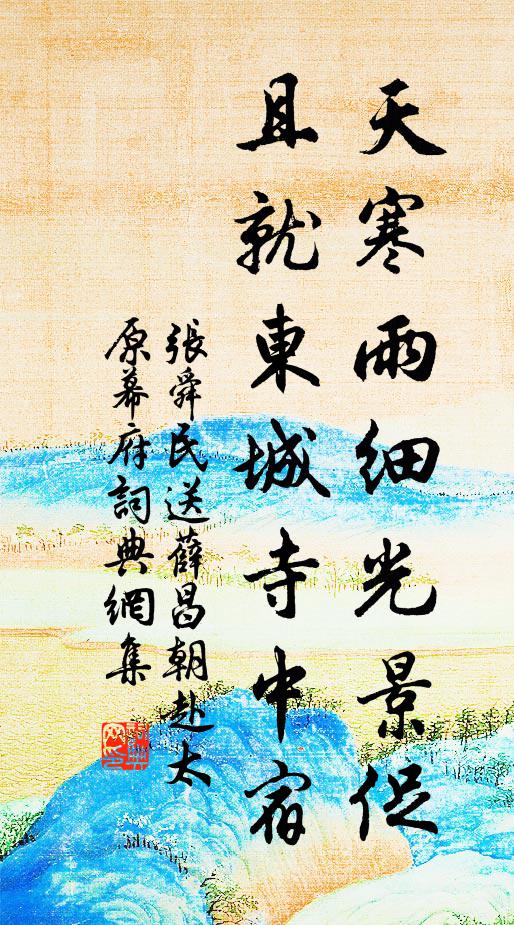 天寒雨細光景促
且就東城寺中宿
張舜民送薛昌朝赴太
原幕府詞典網集